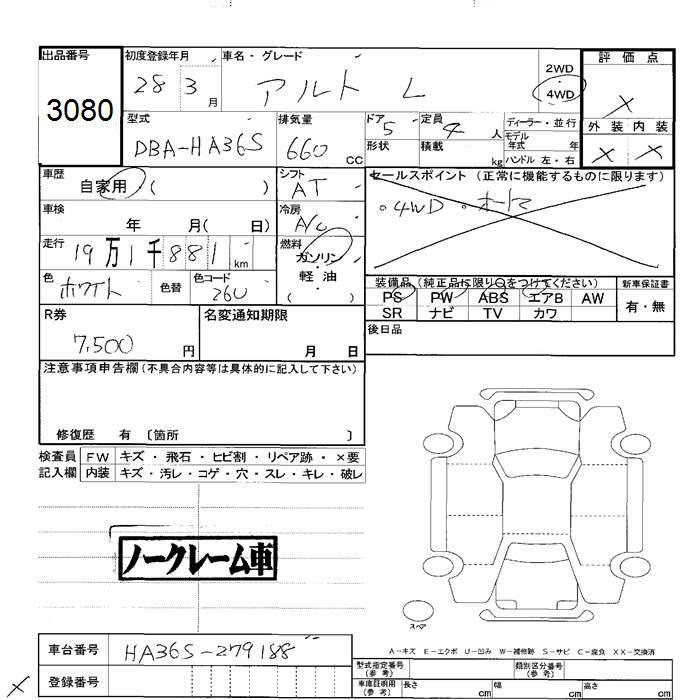 出品番号
3080
初度登録年月
28 3 月
車名・グレード
アルト L
2WD
4WD
評価点
×
型式
DBA-HA36S
排気量
660 cc
ドア
5
形状
定員
4 人
積載
kg
ディーラー・並行
モデル
年式 年
ハンドル 左・右
外装 内装
× ×
車歴
自家用 ( )
シフト
AT
セールスポイント (正常に機能するものに限ります)
・4WD ・オートマ
車検
年 月( 日)
冷房
A/C
走行
19万1千881 km
燃料
ガソリン
・
軽油
( )
色
ホワイト
色替
色コード
26U
装備品 (純正品に限り○をつけてください)
PS PW ABS エアB AW
SR ナビ TV カワ
新車保証書
有・無
R券
7,500 円
名変通知期限
月 日
後日品
注意事項申告欄 (不具合内容等は具体的に記入して下さい)
修復歴 有 〔箇所 〕
検査員 FW キズ・飛石・ヒビ割・リペア跡・×要
記入欄 内装 キズ・汚レ・コゲ・穴・スレ・キレ・破レ
ノークレーム車
スペア
A-キズ E-エクボ U-凹み W-補修跡 S-サビ C-腐食 XX-交換済
車台番号
HA36S-279188
登録番号
型式指定番号
(参考)
類別区分番号
(参考)
車庫証明用
(参考)
長さ cm 幅 cm 高さ cm
×